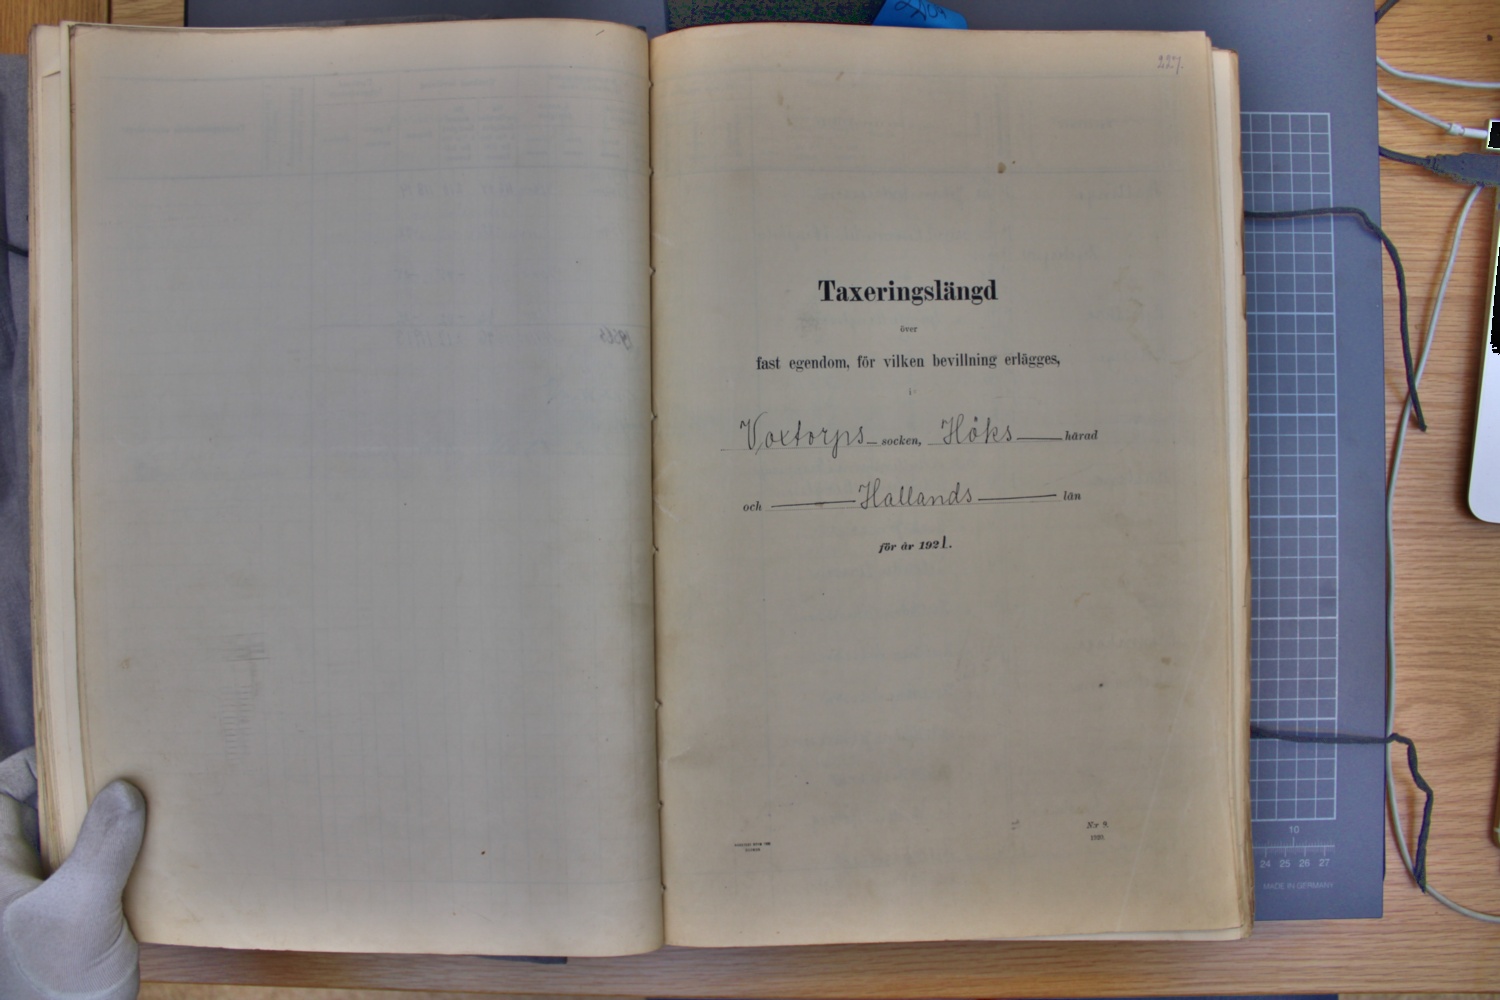 227.
Taxeringslängd
över
fast egendom, för vilken bevillning erlägges,
i
Voxtorps socken, Höks härad
och Hallands län
för år 1921.
N:r 9.
1920.
10
24 25 26 27
MADE IN GERMANY